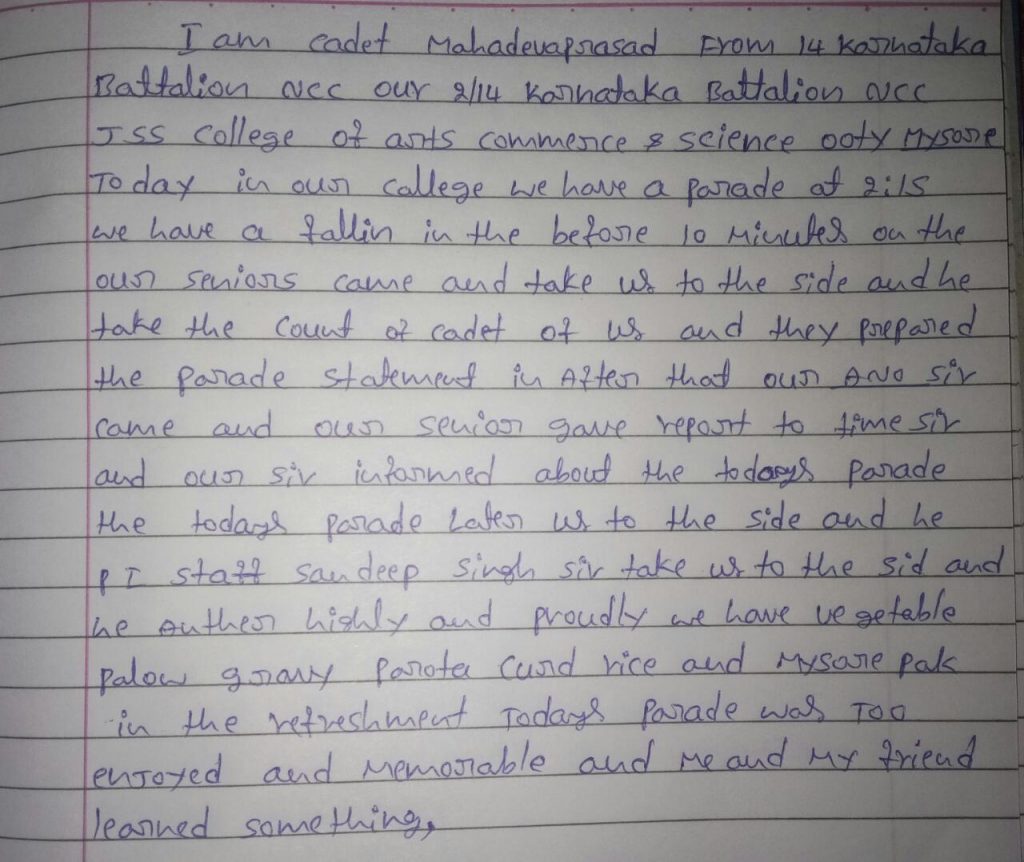 I am cadet Mahadevaprasad From 14 Karnataka
Battalion NCC our 2/14 Karnataka Battalion NCC
JSS College of arts commerce & science ooty Mysore
Today in our college we have a parade at 2:15
we have a fallin in the before 10 Minutes on the
our seniors came and take us to the side and he
take the count of cadet of us and they prepared
the parade statement in After that our ANO sir
came and our senior gave report to time sir
and our sir informed about the todays parade
the todays parade Later us to the side and he
PI staff sandeep singh sir take us to the sid and
he highly and proudly we have vegetable
palow gravy parota curd rice and Mysore pak
in the refreshment Todays parade was Too
enjoyed and Memorable and Me and My friend
learned something,